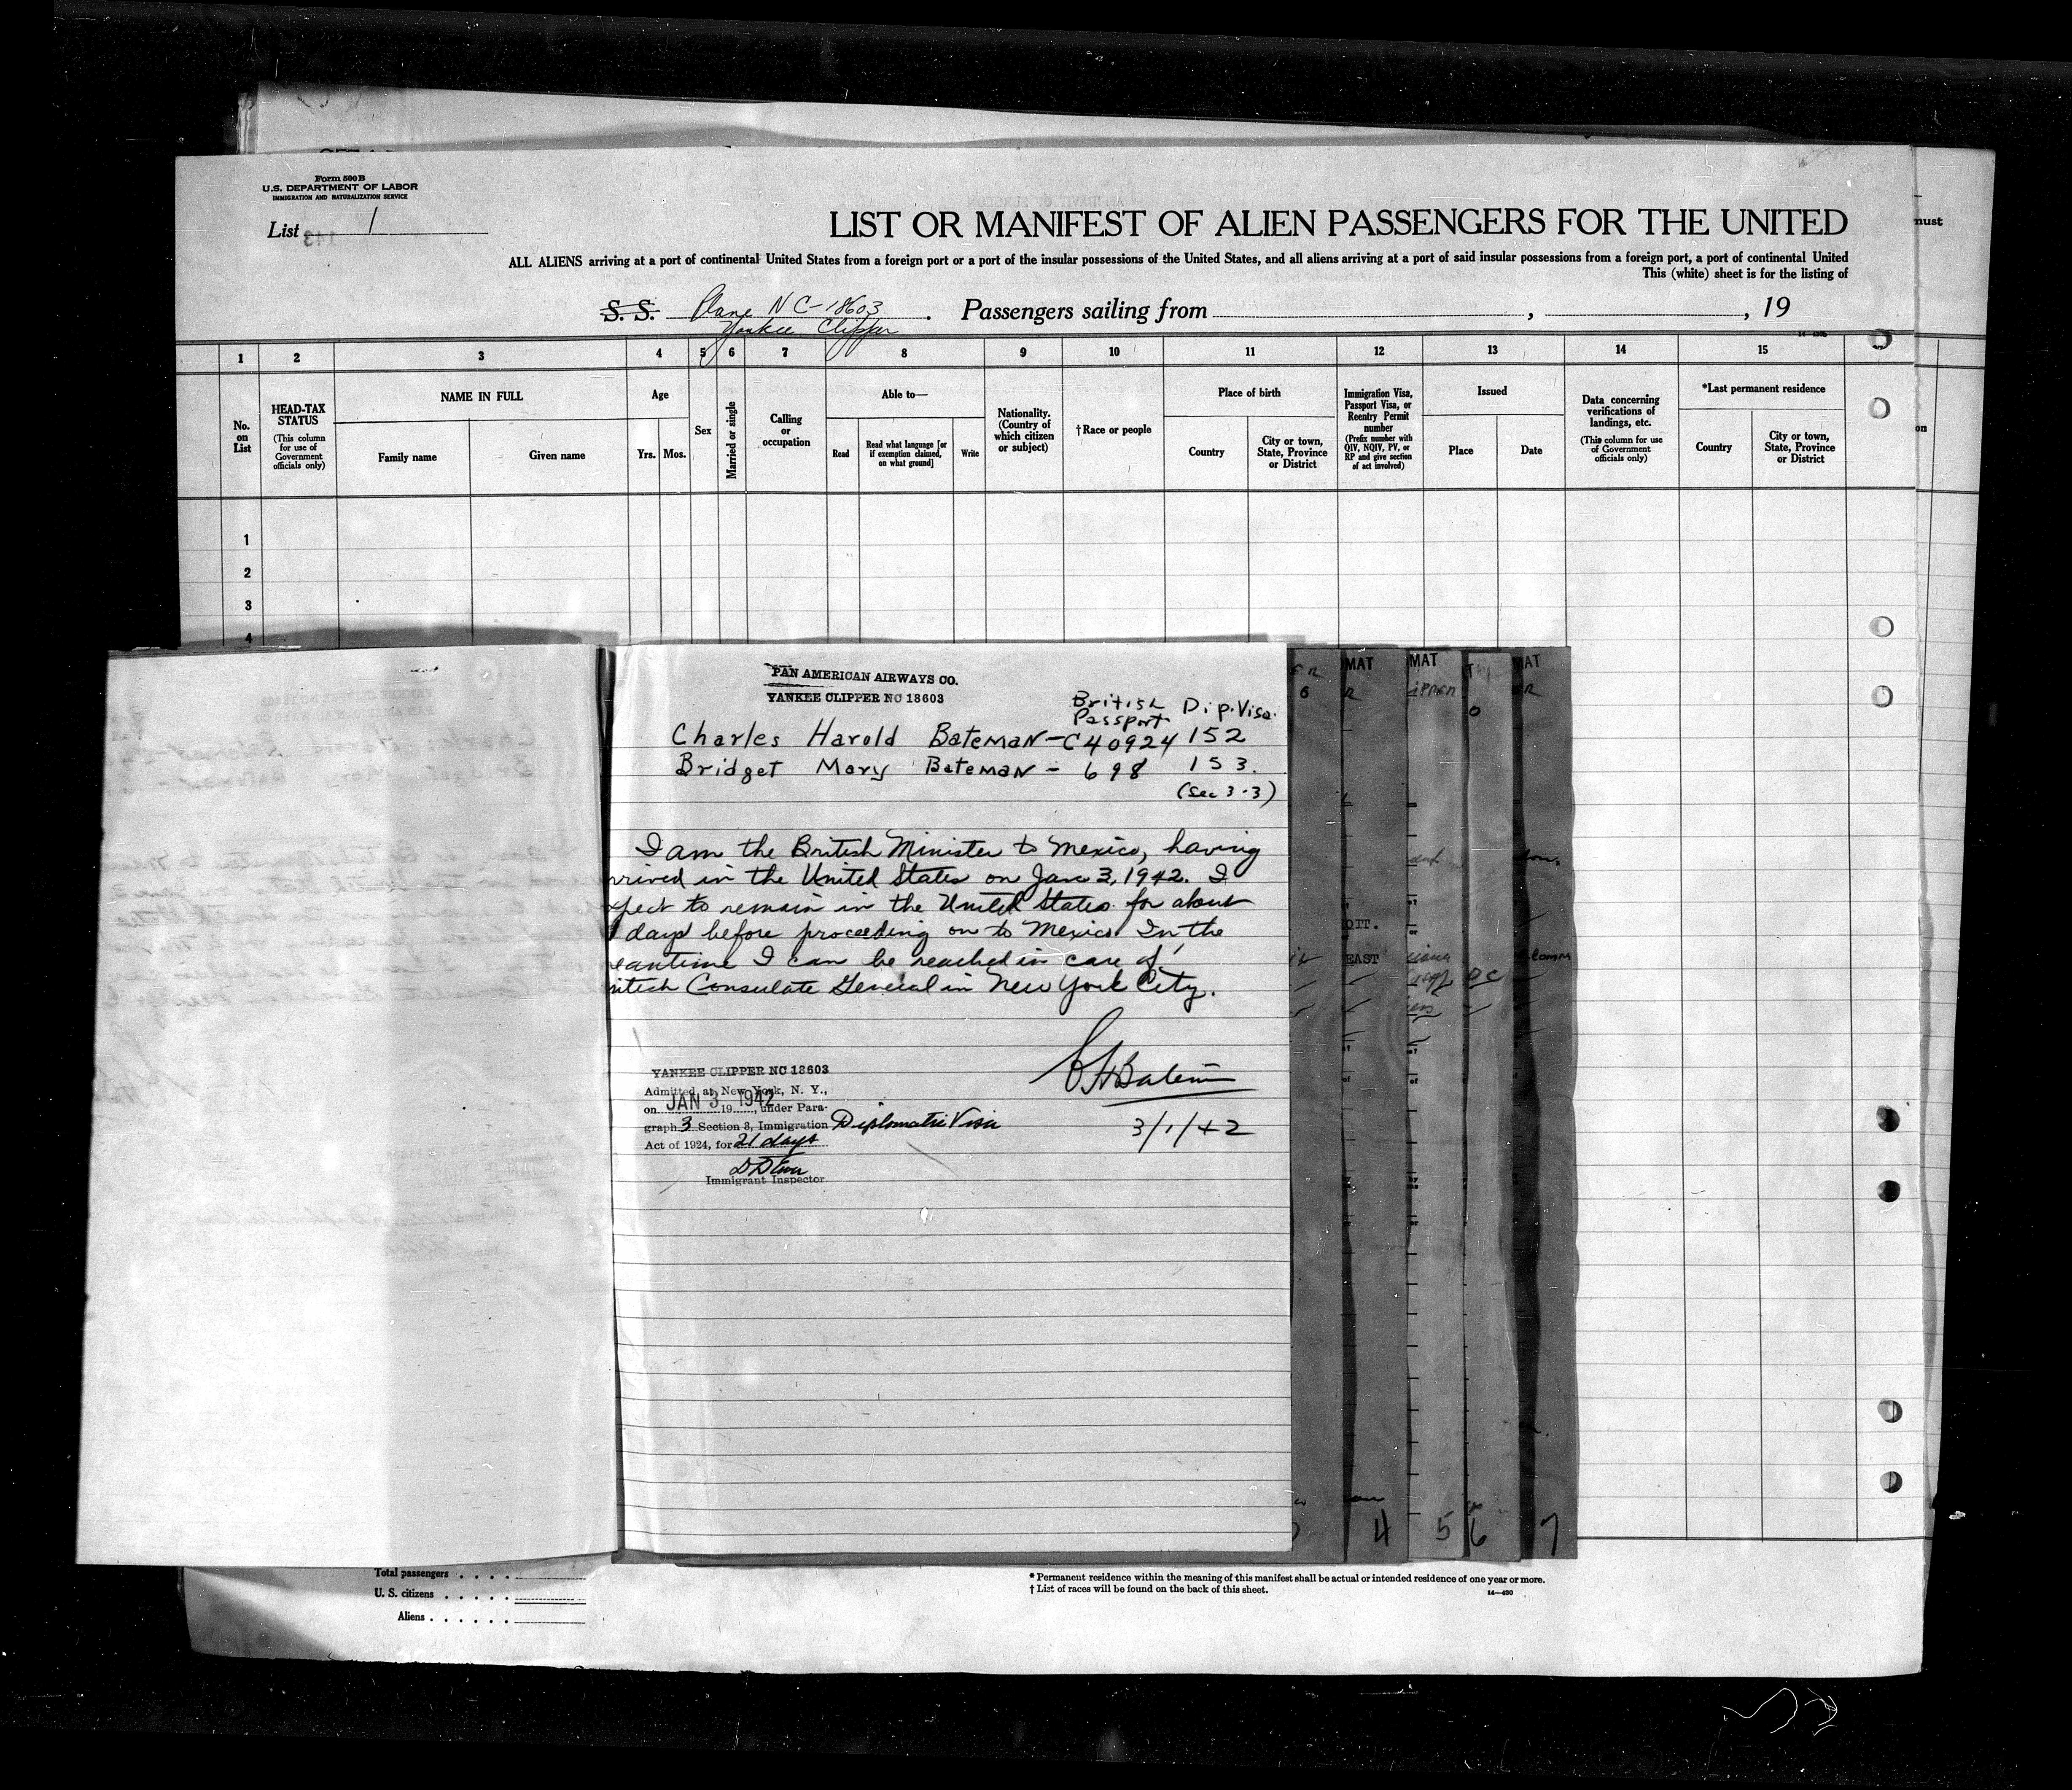 Form 500B
U.S. DEPARTMENT OF LABOR
IMMIGRATION AND NATURALIZATION SERVICE
List 1
LIST OR MANIFEST OF ALIEN PASSENGERS FOR THE UNITED
ALL ALIENS arriving at a port of continental United States from a foreign port or a port of the insular possessions of the United States, and all aliens arriving at a port of said insular possessions from a foreign port, a port of continental United
This (white) sheet is for the listing of
S. S. Plane NC-18603 . Passengers sailing from , , 19
Yankee Clipper
1 2 3 4 5 6 7 8 9 10 11 12 13 14 15
No. on List
HEAD-TAX STATUS
(This column for use of Government officials only)
NAME IN FULL
Family name
Given name
Age
Yrs. Mos.
Sex
Married or single
Calling or occupation
Able to—
Read
Read what language [or if exemption claimed, on what ground]
Write
Nationality. (Country of which citizen or subject)
†Race or people
Place of birth
Country
City or town, State, Province or District
Immigration Visa, Passport Visa, or Reentry Permit number
(Prefix number with QIV, NQIV, PV, or RP and give section of act involved)
Issued
Place
Date
Data concerning verifications of landings, etc.
(This column for use of Government officials only)
*Last permanent residence
Country
City or town, State, Province or District
must
on
1
2
3
4
PAN AMERICAN AIRWAYS CO.
YANKEE CLIPPER NC 18603
British Passport Dip. Visa.
Charles Harold Bateman - C40924 152
Bridget Mary Bateman - 698 153.
(Sec 3-3)
I am the British Minister to Mexico, having
rrived in the United States on Jan 3, 1942. I
xpect to remain in the United States for about
days before proceeding on to Mexico. In the
eantime I can be reached in care of
ritish Consulate General in New York City.
C H Bateman
3/1/42
YANKEE CLIPPER NC 18603
Admitted at New York, N. Y.,
on JAN 3 1942 19 , under Para-
graph 3 Section 3, Immigration Diplomatic Visa
Act of 1924, for 21 days
Immigrant Inspector
MAT MAT MAT
OIT.
EAST
4 5 6 7
Total passengers . . . .
U. S. citizens . . . . . .
Aliens . . . . . .
* Permanent residence within the meaning of this manifest shall be actual or intended residence of one year or more.
† List of races will be found on the back of this sheet.
14—430